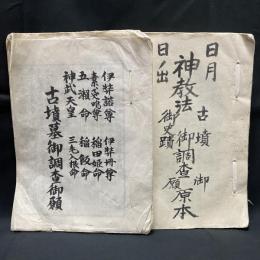 日月
日出
神教法
古墳
御史蹟
御調査
御願
原本
伊弉諾尊 伊弉冊尊
素戔嗚尊 稲田姫命
五瀬命 稲飯命
神武天皇 三毛入根命
古墳墓御調査御願